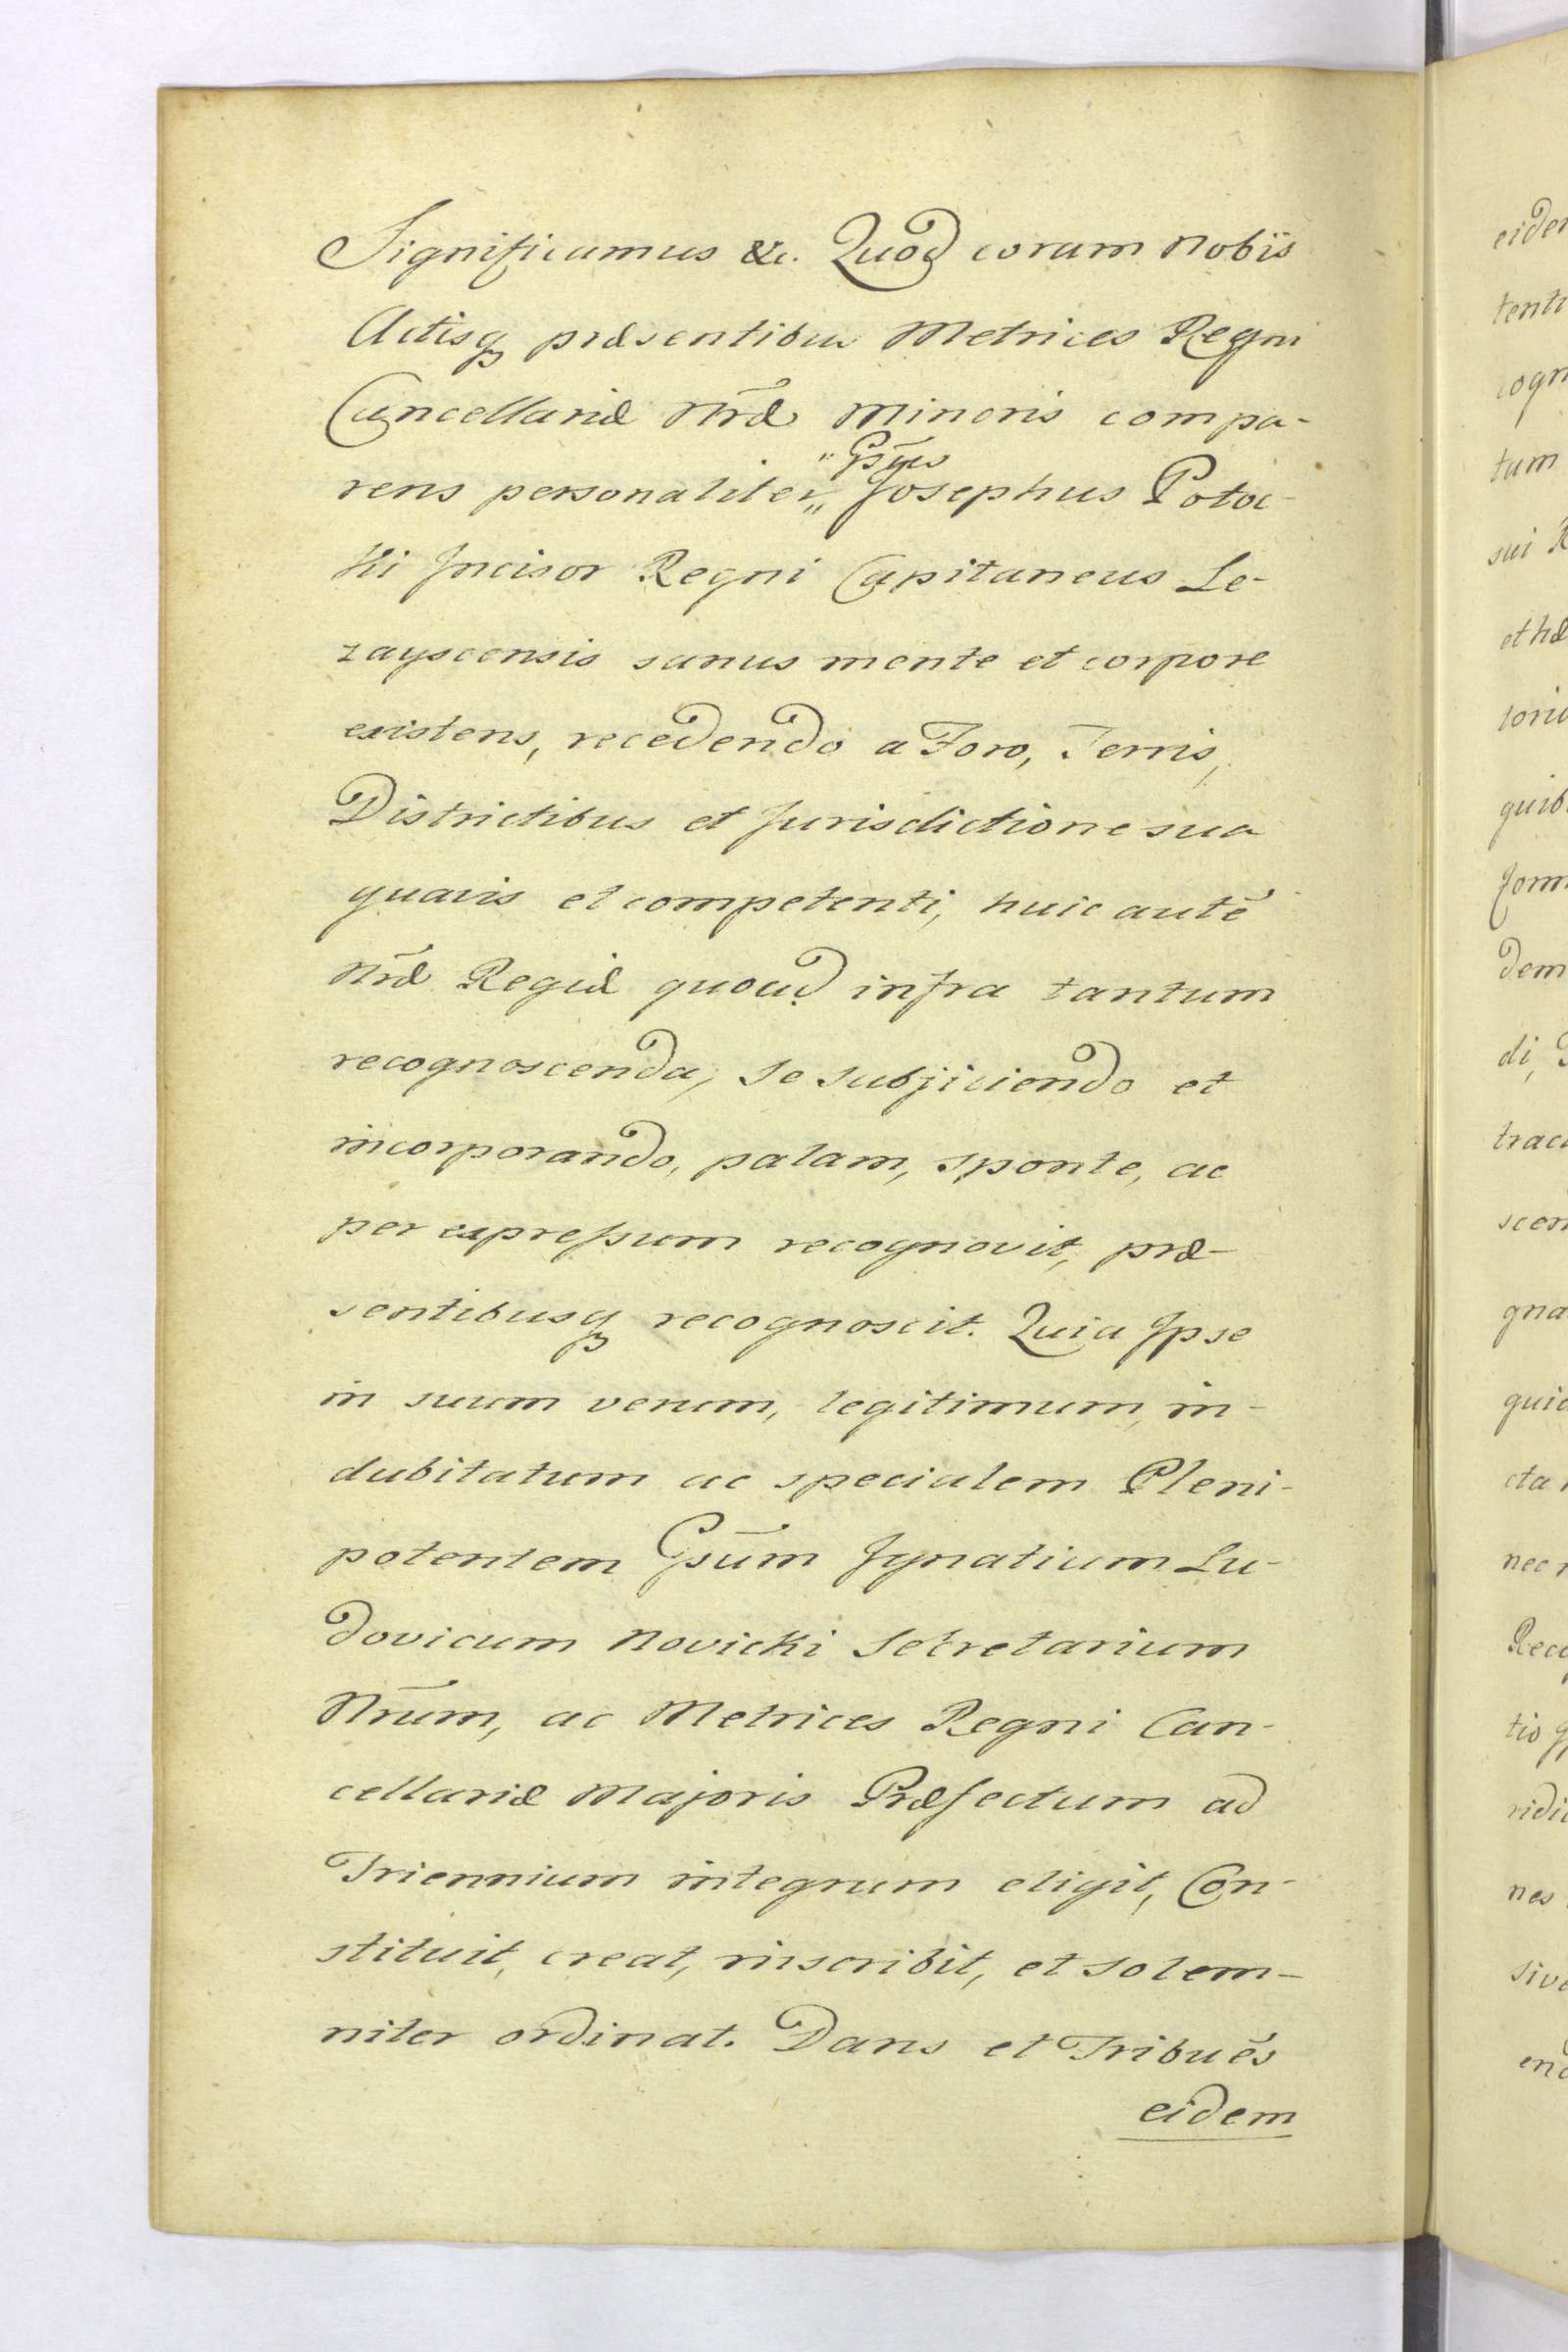 Significamus &c. Quod coram Nobis
Actisq̃ præsentibus Metrices Regni
Cancellariæ Nræ Minoris compa-
rens personaliter „Gsus
Josephus Potoc-
ki Incisor Regni Capitaneus Le-
zayscensis sanus mente et corpore
existens, recedendo a Foro, Terris,
Districtibus et Jurisdictione sua
quavis et competenti, huic autē
Nræ Regiæ quoad infra tantum
recognoscenda, se subjiciendo et
incorporando, palam, sponte, ac
per expressum recognovit, præ-
sentibusq̃ recognoscit. Quia Ipse
in suum verum, legitimum, in-
dubitatum ac specialem Pleni-
potentem Gsum Ignatium Lu-
dovicum Novicki Secretarium
Nrum, ac Metrices Regni Can-
cellariæ Majoris Præfectum ad
Triennium integrum eligit, Con-
stituit, creat, inscribit, et solem-
niter ordinat. Dans et Tribuēs
eidem